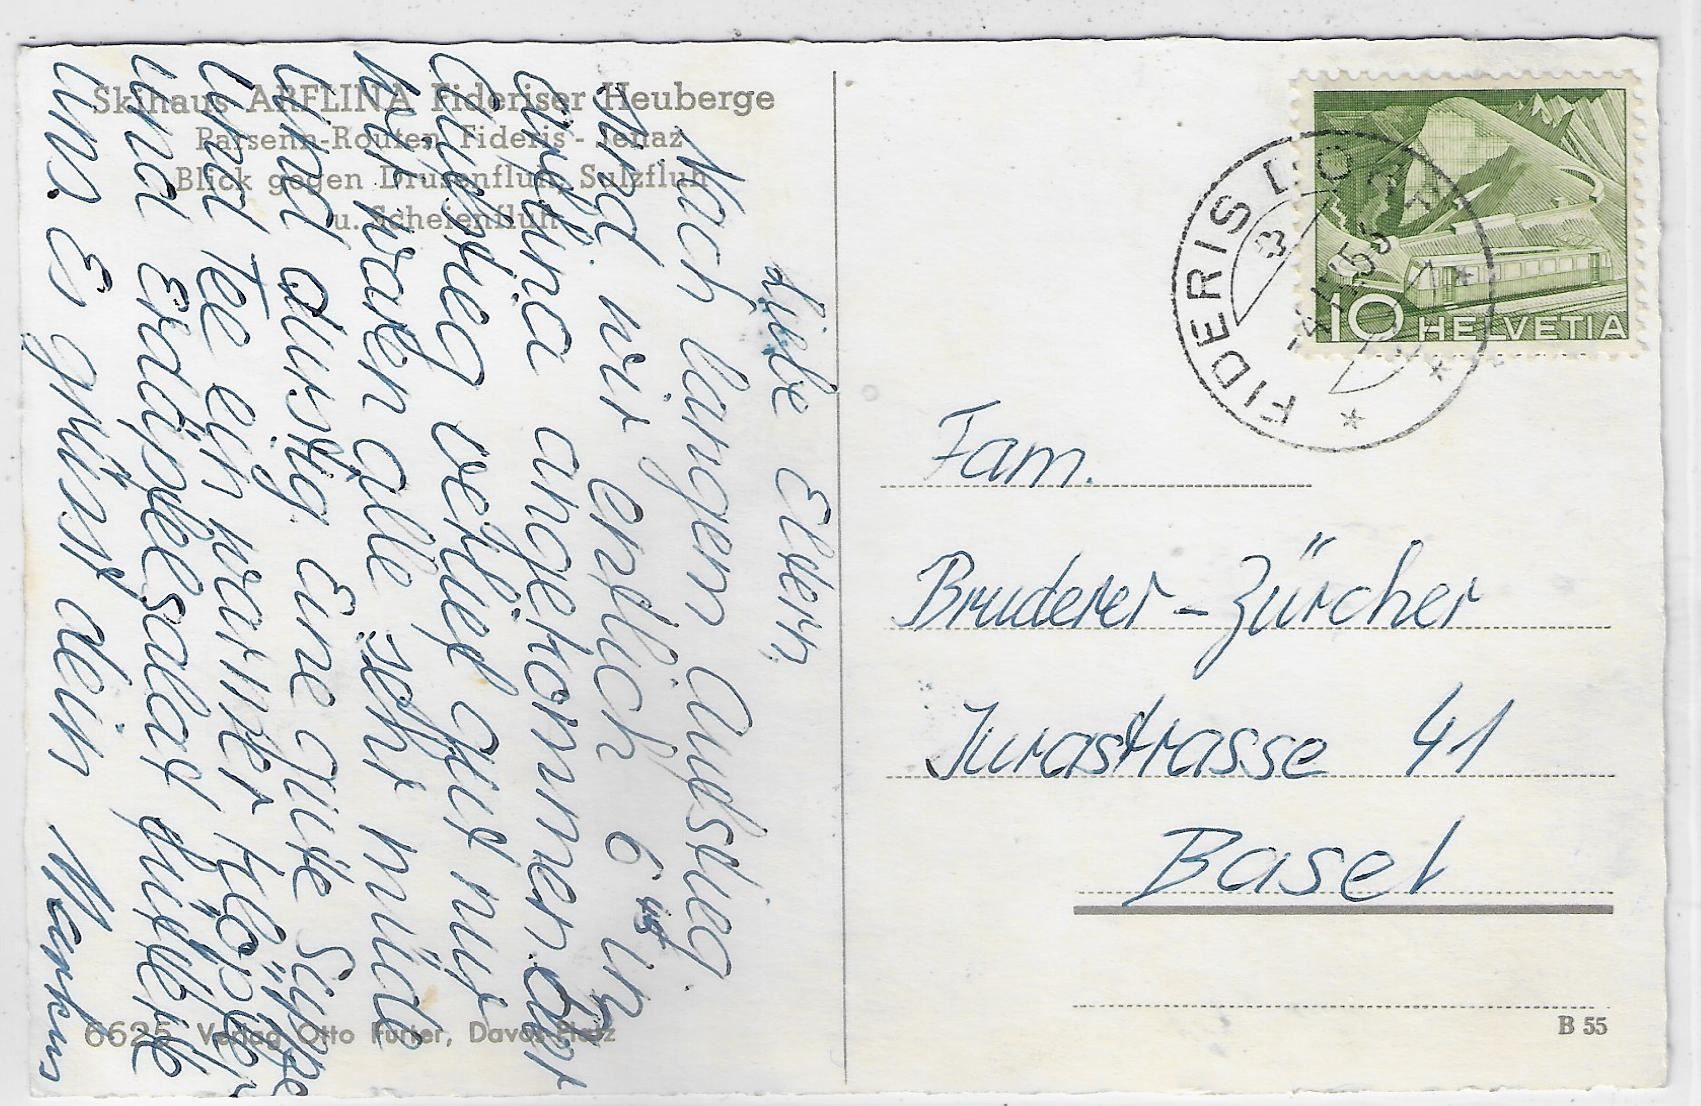 Skihaus ARFLINA Fideriser Heuberge
Parsenn-Routen Fideris - Jenaz
Blick gegen Drusenfluh, Sulzfluh
u. Scheienfluh
Liebe Eltern,
Nach langen Aufstieg
sind wir entlich 6 in
arflina angekommen der
Aufstieg verlief gut nur
wir waren alle sehr müde
und durstig Eine gute Suppe
und Tee ein warmer Klöpfer
und Erdöpfelsalat
uns. Es grüsst dein Markus
6625 Verlag Otto Furter, Davos-Platz
FIDERIS
10 HELVETIA
Fam.
Bruderer-Zürcher
Jurastrasse 41
Basel
B 55